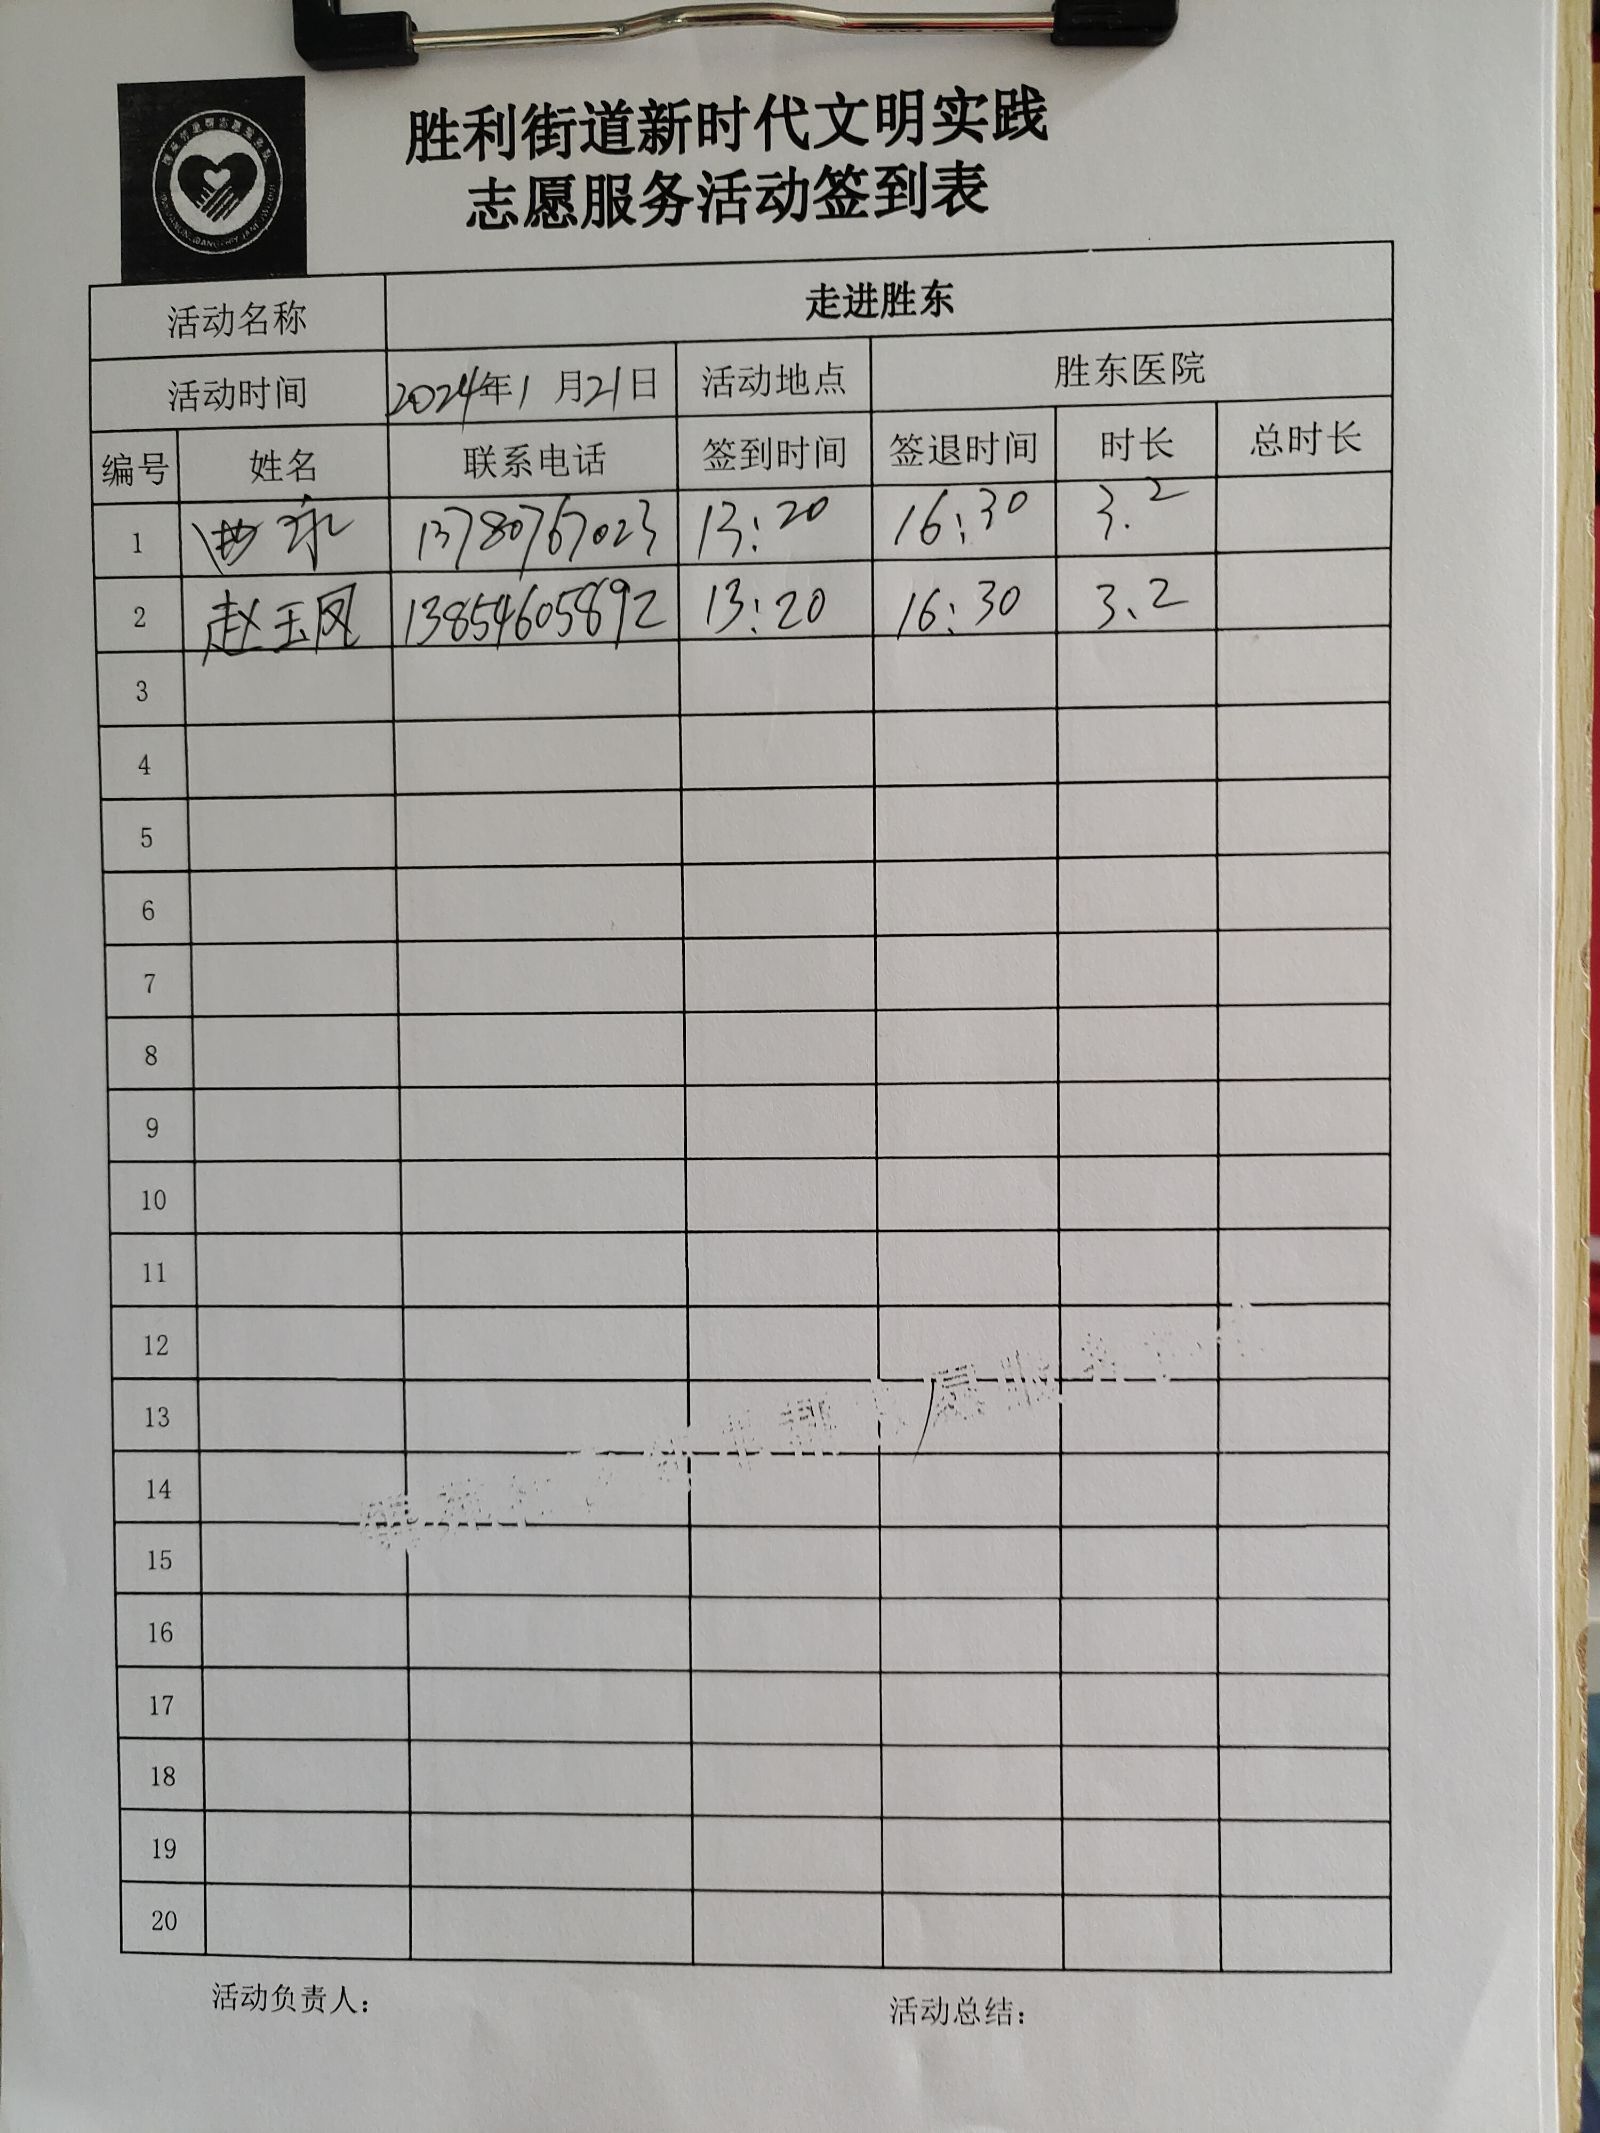 胜利街道新时代文明实践
志愿服务活动签到表
活动名称 走进胜东
活动时间 2024年1月21日 活动地点 胜东医院
编号 姓名 联系电话 签到时间 签退时间 时长 总时长
1 13780767023 13:20 16:30 3.2
2 赵玉凤 13854605892 13:20 16:30 3.2
3
4
5
6
7
8
9
10
11
12
13
14
15
16
17
18
19
20
活动负责人: 活动总结: